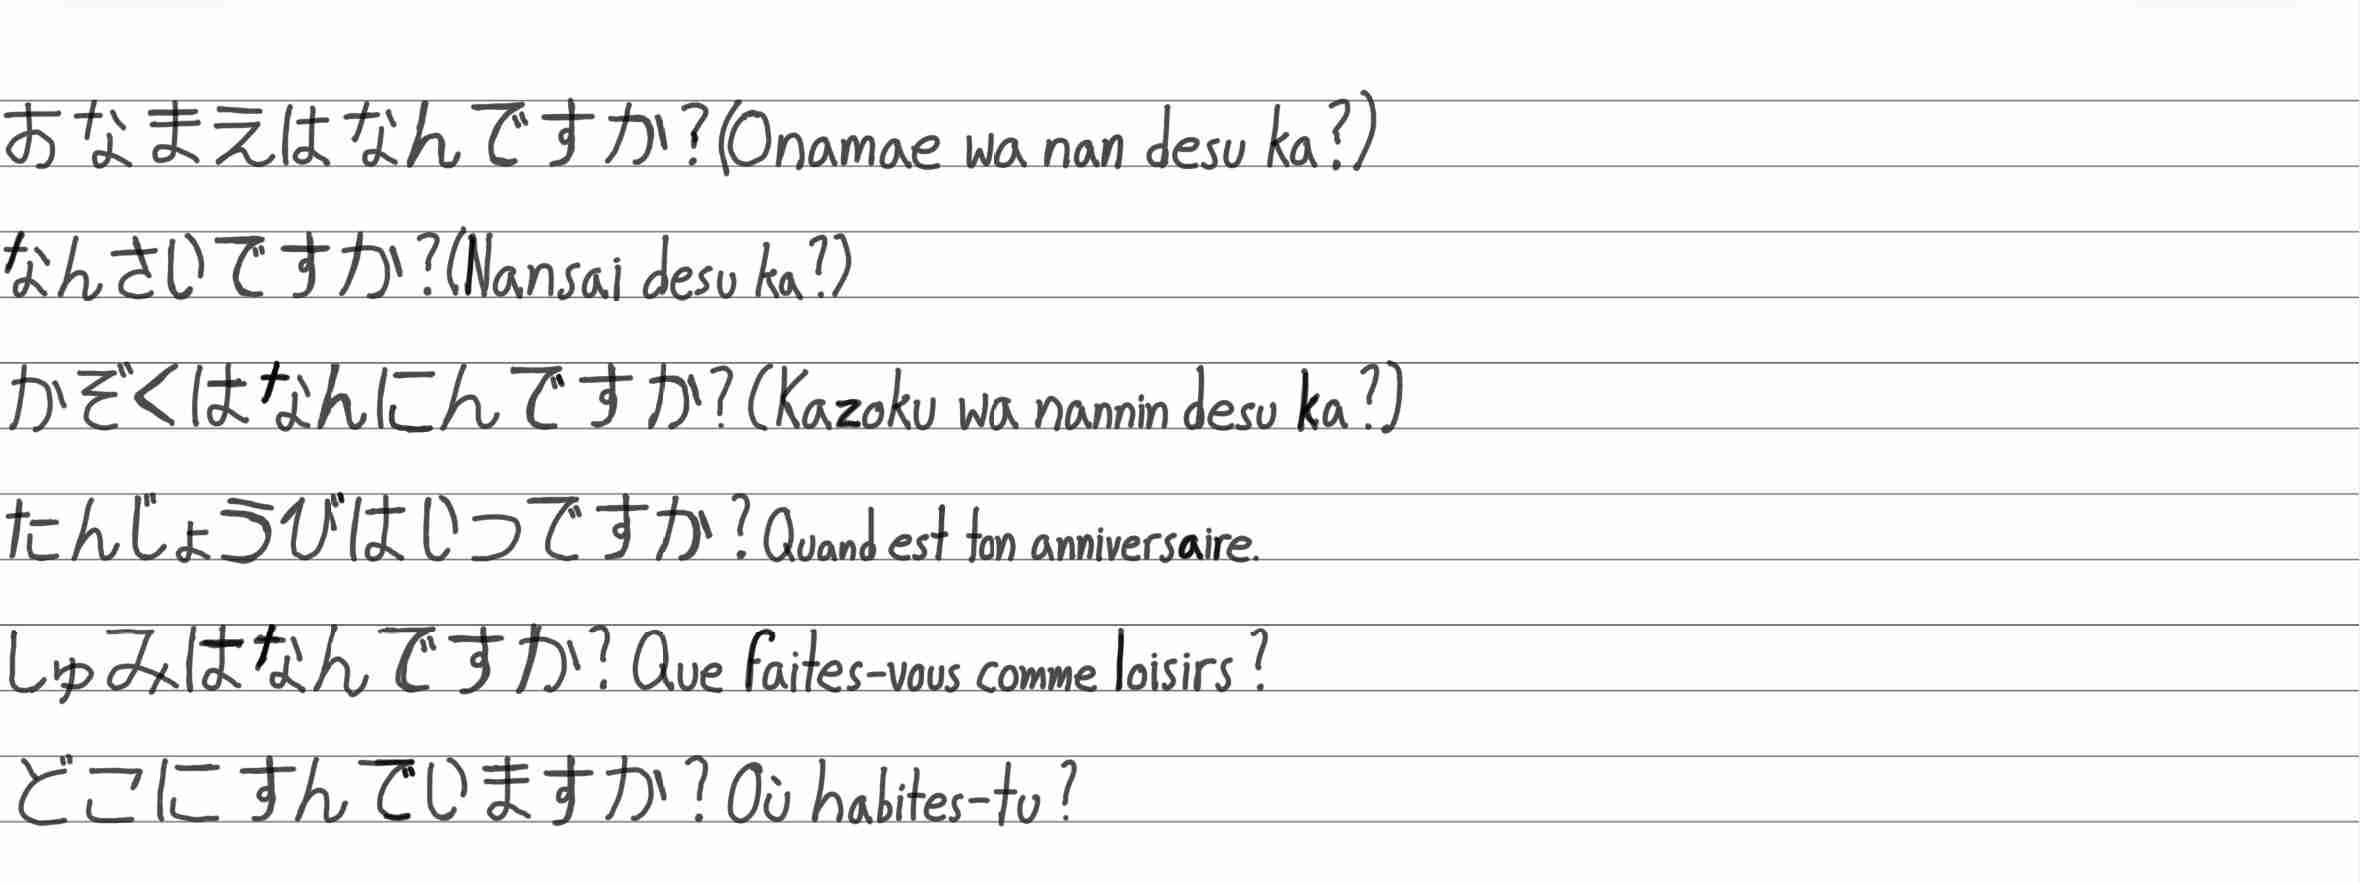 おなまえはなんですか?(Onamae wa nan desu ka?)
なんさいですか?(Nansai desu ka?)
かぞくはなんにんですか?(Kazoku wa nannin desu ka?)
たんじょうびはいつですか?Quand est ton anniversaire.
しゅみはなんですか?Que faites-vous comme loisirs?
どこにすんでいますか?Où habites-tu?